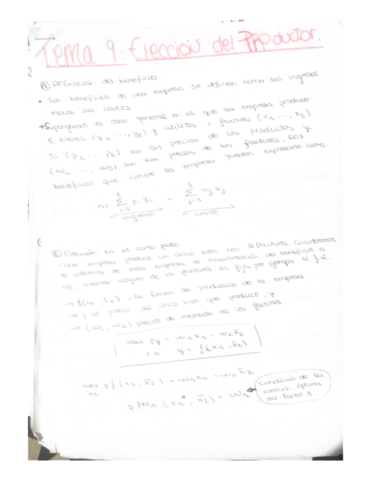 Tema 9: Elección del Productor.
Ⓐ Definición del beneficio.
• Los beneficios de una empresa se definen como sus ingresos
menos sus costes
→ Supongamos el caso general en el que la empresa produce
bienes (y₁, ..., y) y utiliza factores (x₁ ..., x).
Si (p₁ ... p) son los precios de los productos y
(w₁, ..., w) son los precios de los factores, los
beneficios que obtiene la empresa pueden expresarse como
π = Σ pᵢ yᵢ - Σ wⱼ xⱼ
ingresos coste
Ⓑ Elección en el corto plazo.
una empresa produce un único bien con 2 factores. Consideremos
problema de esta empresa de maximización de beneficios a
c/p, cuando alguno de los factores es fijo, por ejemplo el f.2.
→ f(x₁, x̄₂), la función de producción de la empresa
→ p el precio del único bien que produce, y
→ (w₁, w₂) precios de mercado de los factores.
max py - w₁x₁ - w₂x̄₂
s.a y = f(x₁, x̄₂)
max p f(x₁, x̄₂) - w₁x₁ - w₂x̄₂
x₁
p PM₁ (x₁*, x̄₂) = w₁
Condición de la
elección óptima
del factor 1.